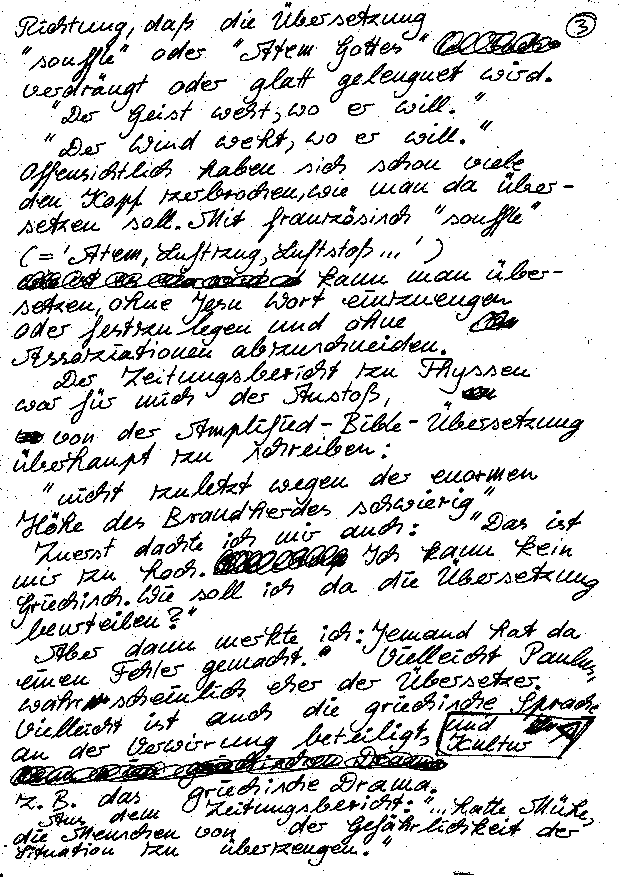 Richtung, daß die Übersetzung
3
"souffle" oder "Atem Gottes"
verdrängt oder glatt geleugnet wird.
"Der Geist weht, wo er will."
"Der Wind weht, wo er will."
Offensichtlich haben sich schon viele
den Kopf zerbrochen, wie man da über-
setzen soll. Mit französisch "souffle"
(= 'Atem, Luftzug, Luftstoß...')
kann man über-
setzen, ohne Jesu Wort einzuengen
oder festzulegen und ohne
Assoziationen abzuschneiden.
Der Zeitungsbericht zu Thyssen
war für mich der Anstoß,
von der Amplified-Bible-Übersetzung
überhaupt zu schreiben:
"nicht zuletzt wegen der enormen
Höhe des Brandherdes schwierig"
Zuerst dachte ich mir auch: "Das ist
mir zu hoch. Ich kann kein
Griechisch. Wie soll ich da die Übersetzung
beurteilen?"
Aber dann merkte ich: Jemand hat da
einen Fehler gemacht." Vielleicht Paulus,
wahrscheinlich eher der Übersetzer.
Vielleicht ist auch die griechische Sprache
und Kultur
an der Verwirrung beteiligt,
z.B. das griechische Drama.
Aus dem Zeitungsbericht: "...hatte Mühe,
die Menschen von der Gefährlichkeit der
Situation zu überzeugen."